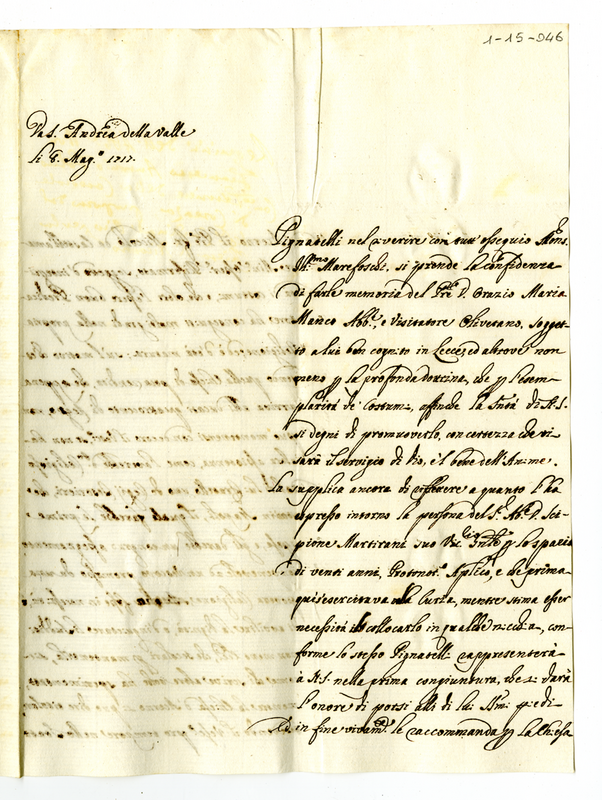 1-15-046
Da S. Andrea della Valle
li 8. Mag.º 1717.
Pignatelli nel riverire con tutt'ossequio Mons.
Ill.mo Marefoschi, si prende la confidenza
di farle memoria del Pre D. Orazio Maria
Manco Abb.e, e Visitatore Olivetano, sogget-
to a lui ben cognito in Lecce, ed altrove non
meno p la profonda dottrina, che p l'esem-
plarità de Costumi, affinche la Sntà di N. S.
si degni di promuoverlo, con certezza che vi-
sarà il servigio di Dio, e'l bene dell'Anime.
La supplica ancora di riflettere a quanto l'ha
espresso intorno la persona del Sr. Ab.e D. Sci-
pione Martirani suo Vic.º p lo spazio
di venti anni, Protonot.º Aplico, e che prima
qui esercitava la Curia, mentre stima esser
necessità il collocarlo in qualche nicchia, con-
forme lo stesso Pignatelli rappresenterà
à N. S. nella prima congiuntura, che si darà
l'onore di portsi alli di lui Smi piedi-
Ed in fine vivam.te le raccommanda p la Chiesa